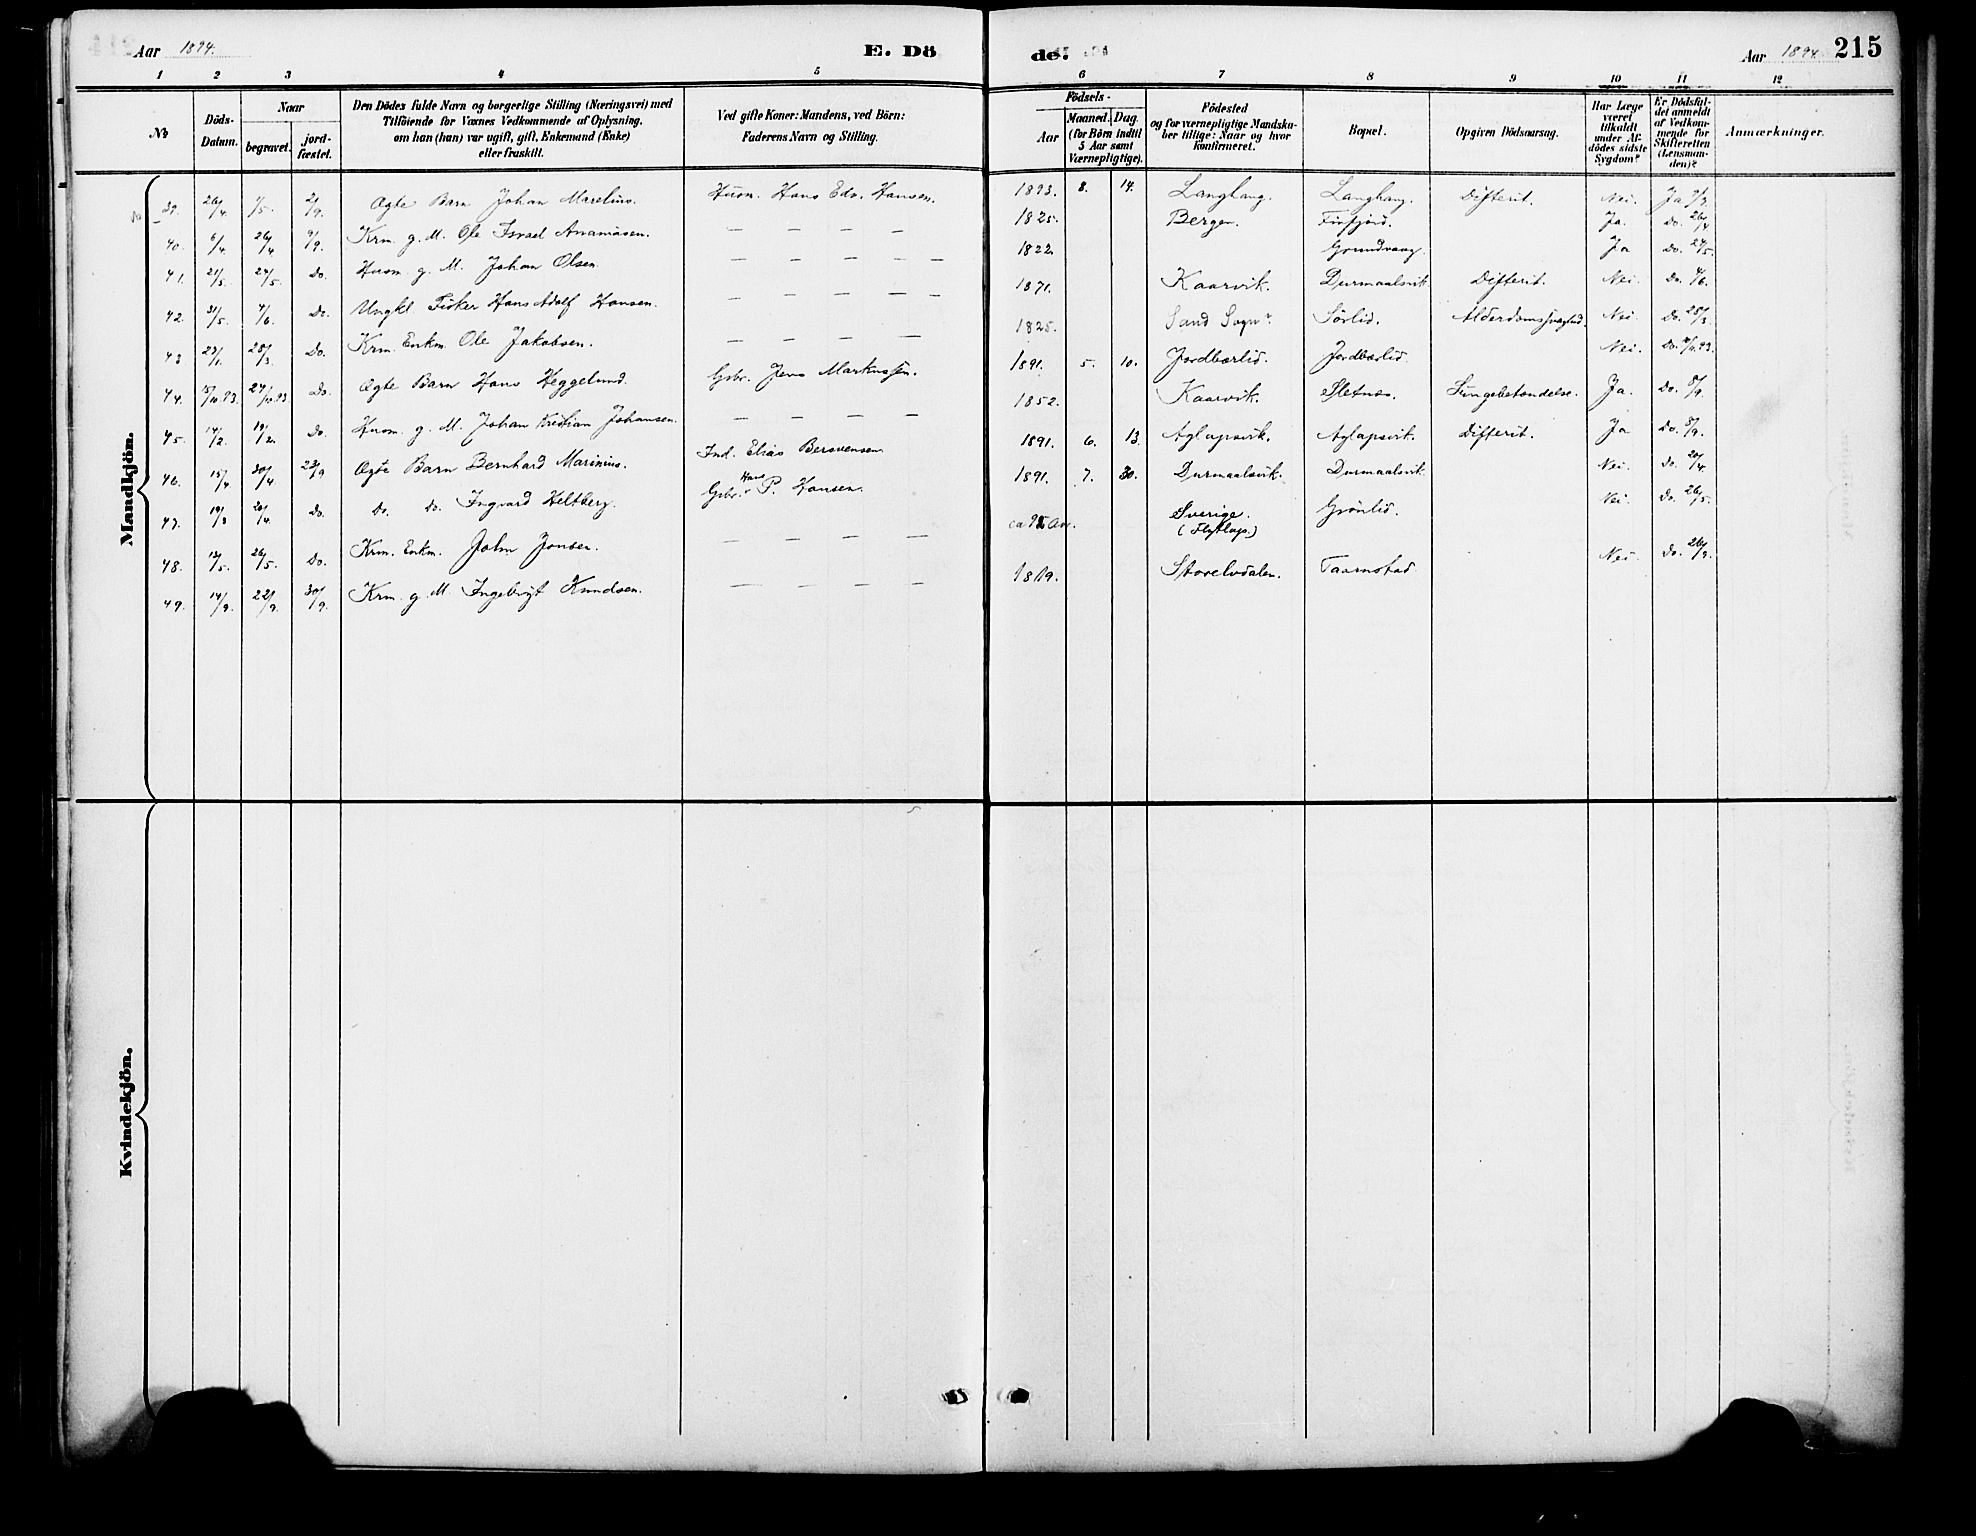 Aar 1894. E. Dö de. Aar 1894. 215
1 2 3 4 5 6 7 8 9 10 11 12
No
Döds-Datum.
Naar
begravet.
jord-fæstet.
Den Dödes fulde Navn og borgerlige Stilling (Næringsvei) med
Tilföiende for Voxnes Vedkommende af Oplysning,
om han (hun) var ugift, gift, Enkemand (Enke)
eller fraskilt.
Ved gifte Koner: Mandens, ved Börn:
Faderens Navn og Stilling.
Födsels-
Aar
Maaned. Dag.
(for Börn indtil
5 Aar samt
Værnepligtige).
Födested
og for værnepligtige Mandska-
ber tillige: Naar og hvor
konfirmeret.
Bopæl.
Opgiven Dödsaarsag.
Har Læge
været
tilkaldt
under Af-
dödes sidste
Sygdom?
Er Dödsfal-
det anmeldt
af Vedkom-
mende for
Skifteretten
(Lensman-
den)?
Anmærkninger.
Mandkjön.
39. 26/4. 1/5. 2/9. Ægte Barn Johan Marelius. Husm. Hans Edv. Hansen. 1893. 8. 14. Langhang. Langhang. Difterit. Nei. Ja
40. 6/4. 26/4 9/9. Krm. g. M. Ole Israel Ananiasen. — — — — 1825. Bergen. Finfjord. Ja. Do. 26/4
41. 21/5. 24/5. Do. Husm. g. M. Johan Olsen. — — — — — 1822. Grundvaag. Ja Do. 24/5.
42. 31/5. 4/6. Do. Ungkl. Fisker Hans Adolf Hansen. — — — — — 1871. Kaarvik. Durmaalsvik. Difterit. Nei. Do. 4/6.
43 23/1. 28/3. Do. Krm. Enkm. Ole Jakobsen. — — — — 1825. Sand Sogn. Sörlid. Alderdomssvaghed. Nei. Do. 28/3.
44. 15/10.93. 27/10.93 Do. Ægte Barn Hans Heggelund. Gbr. Jens Markussen. 1891. 5. 10. Jordbærlid. Jordbærlid. Nei. Do.
45. 14/2. 19/2. Do. Husm. g. M. Johan Kristian Johansen. — — — — 1852. Kaarvik. Sletnes. Lungebetændelse. Ja. Do. 8/9.
46. 15/4 30/4. 23/9 Ægte Barn Bernhard Marinius. Ind. Elias Bersvensen 1891. 6. 13. Aglapsvik. Aglapsvik. Difterit. Ja Do. 8/9.
47. 19/3 20/4. Do. Do. Do. Ingvard Heltberg. Gbr. Hans P. Hansen. 1891. 7. 30. Durmaalsvik. Durmaalsvik. Nei. Do. 20/4.
48. 13/5. 26/5. Do. Krm. Enkm. John Jonsen. — — — — ca Aar. Sverige. Grönlid. Nei Do. 26/5.
49. 14/9. 22/9. 30/9. Krm. g. M. Ingebrigt Knudsen. — — — — 1819. Storelvdalen. Taarnstad Nei. Do. 26/9.
Kvindekjön.